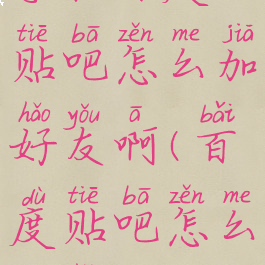 tiē bā zěn me jiā
贴吧怎么加
hǎo yǒu ā bǎi
好友啊(百
dù tiē bā zěn me
度贴吧怎么